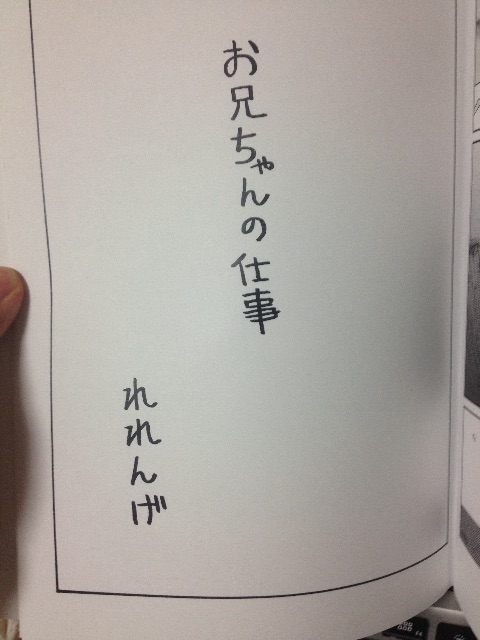 お兄ちゃんの仕事
れれんげ